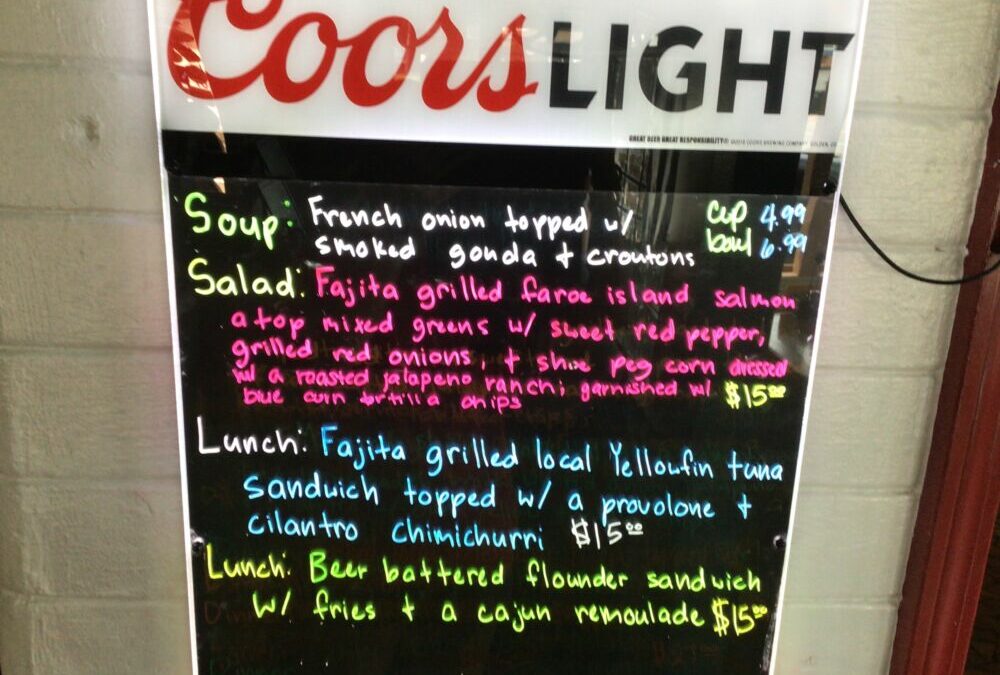 Coors LIGHT
GREAT BEER GREAT RESPONSIBILITY®
Soup: French onion topped w/ cup 4.99
smoked gouda + croutons bowl 6.99
Salad: Fajita grilled faroe island salmon
atop mixed greens w/ sweet red pepper,
grilled red onions, + shoe peg corn dressed
w/ a roasted jalapeno ranch; garnished w/ $15.00
blue corn tortilla chips
Lunch: Fajita grilled local Yellowfin tuna
sandwich topped w/ a provolone +
cilantro chimichurri $15.00
Lunch: Beer battered flounder sandwich
w/ fries + a cajun remoulade $15.00